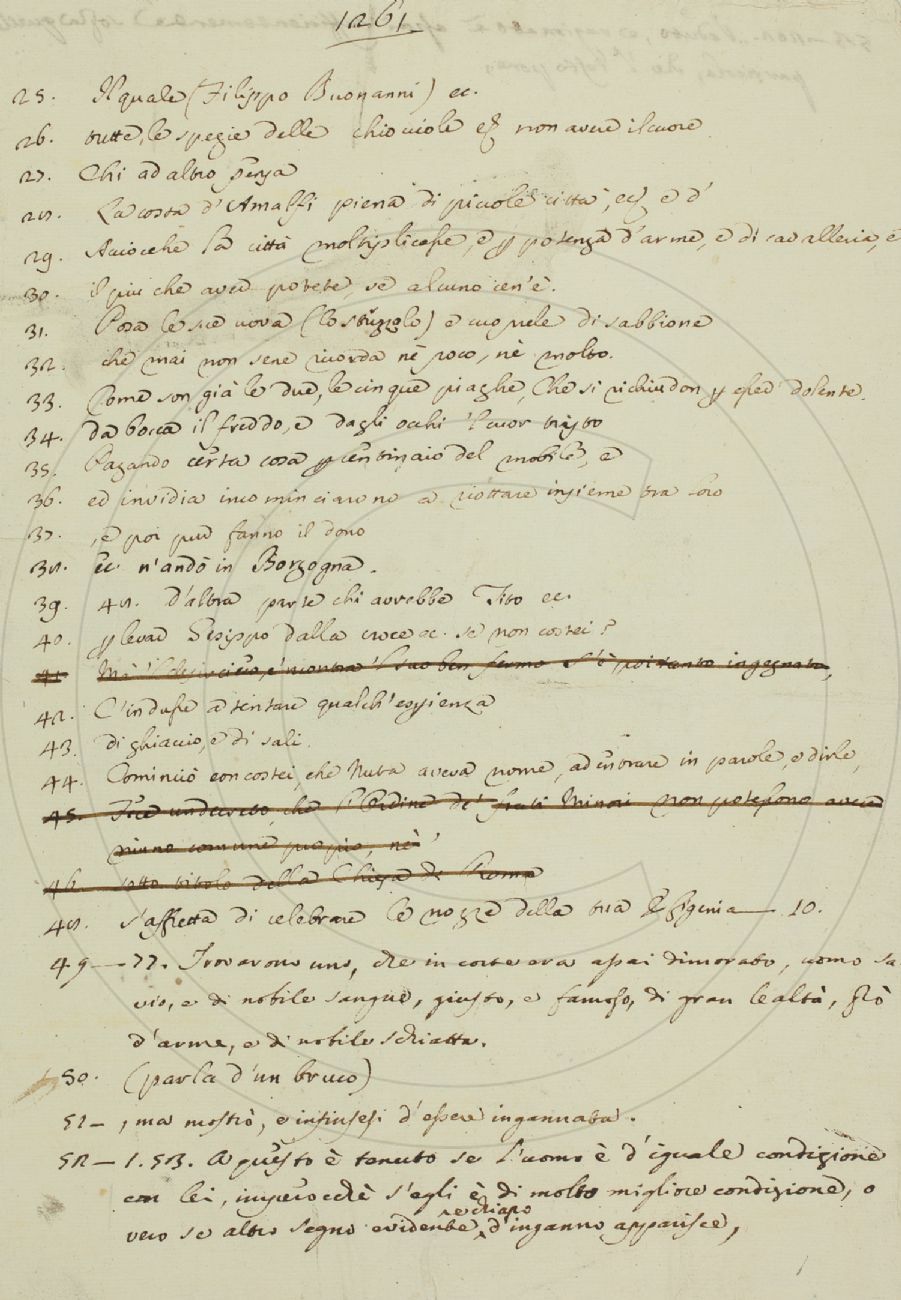 1261.
25. Il quale (Filippo Buonanni) ec.
26. tutte le spezie delle chiocciole non avere il cuore
27. Chi ad altro pensa
28. La costa d'Amalfi piena di picciole città, e d'
29. Acciocchè la città moltiplicasse, e p potenza d'arme, e di cavalleria, e
30. il più che aver potete, se alcuno cen'è.
31. Posa le sue uova (lo struzzolo) e cuoprele di sabbione
32. che mai non sene ricorda nè poco, nè molto.
33. Come son già le due, le cinque piaghe, Che si richiudon p esser dolente.
34. da bocca il freddo, e dagli occhi 'l cuor tristo
35. Pagando certa cosa p centinaio del mobile, e
36. ed invidia incominciarono a riottare insieme tra loro
37. , e poi pur fanno il dono
38. Ec n'andò in Borgogna.
39. 48. D'altra parte chi avrebbe Tito ec.
40. p levar Gesippo dalla croce ec. se non costei?
41. 'l suo ben fermo S'è poi tanto ingegnato,
42. L'indusse a tentare qualch'esperienza
43. di ghiaccio, e di sali.
44. Cominciò con costei, che Nuta aveva nome, ad entrare in parole, e dirle,
45. Fece un decreto, che l'Ordine de' frati Minori non potessono avere
niuno comune proprio, nè
46. sotto titolo della Chiesa di Roma
48. s'affretta di celebrare le nozze della tua Efigenia — 10.
49 — 77. Trovarono uno, che in corte era assai dimorato, uomo sa
vio, e di nobile sangue, giusto, e famoso, di gran lealtà, prò
d'arme, e di nobile schiatta.
50. (parla d'un bruco)
51 — , ma mostrò, e infinsesi d'essere ingannata.
52 — 1. 53. A questo è tenuto se l'uomo è d'iguale condizione
con lei, imperocchè s'egli è di molto migliore condizione, o
vero se altro segno evidente, d'inganno apparisce,